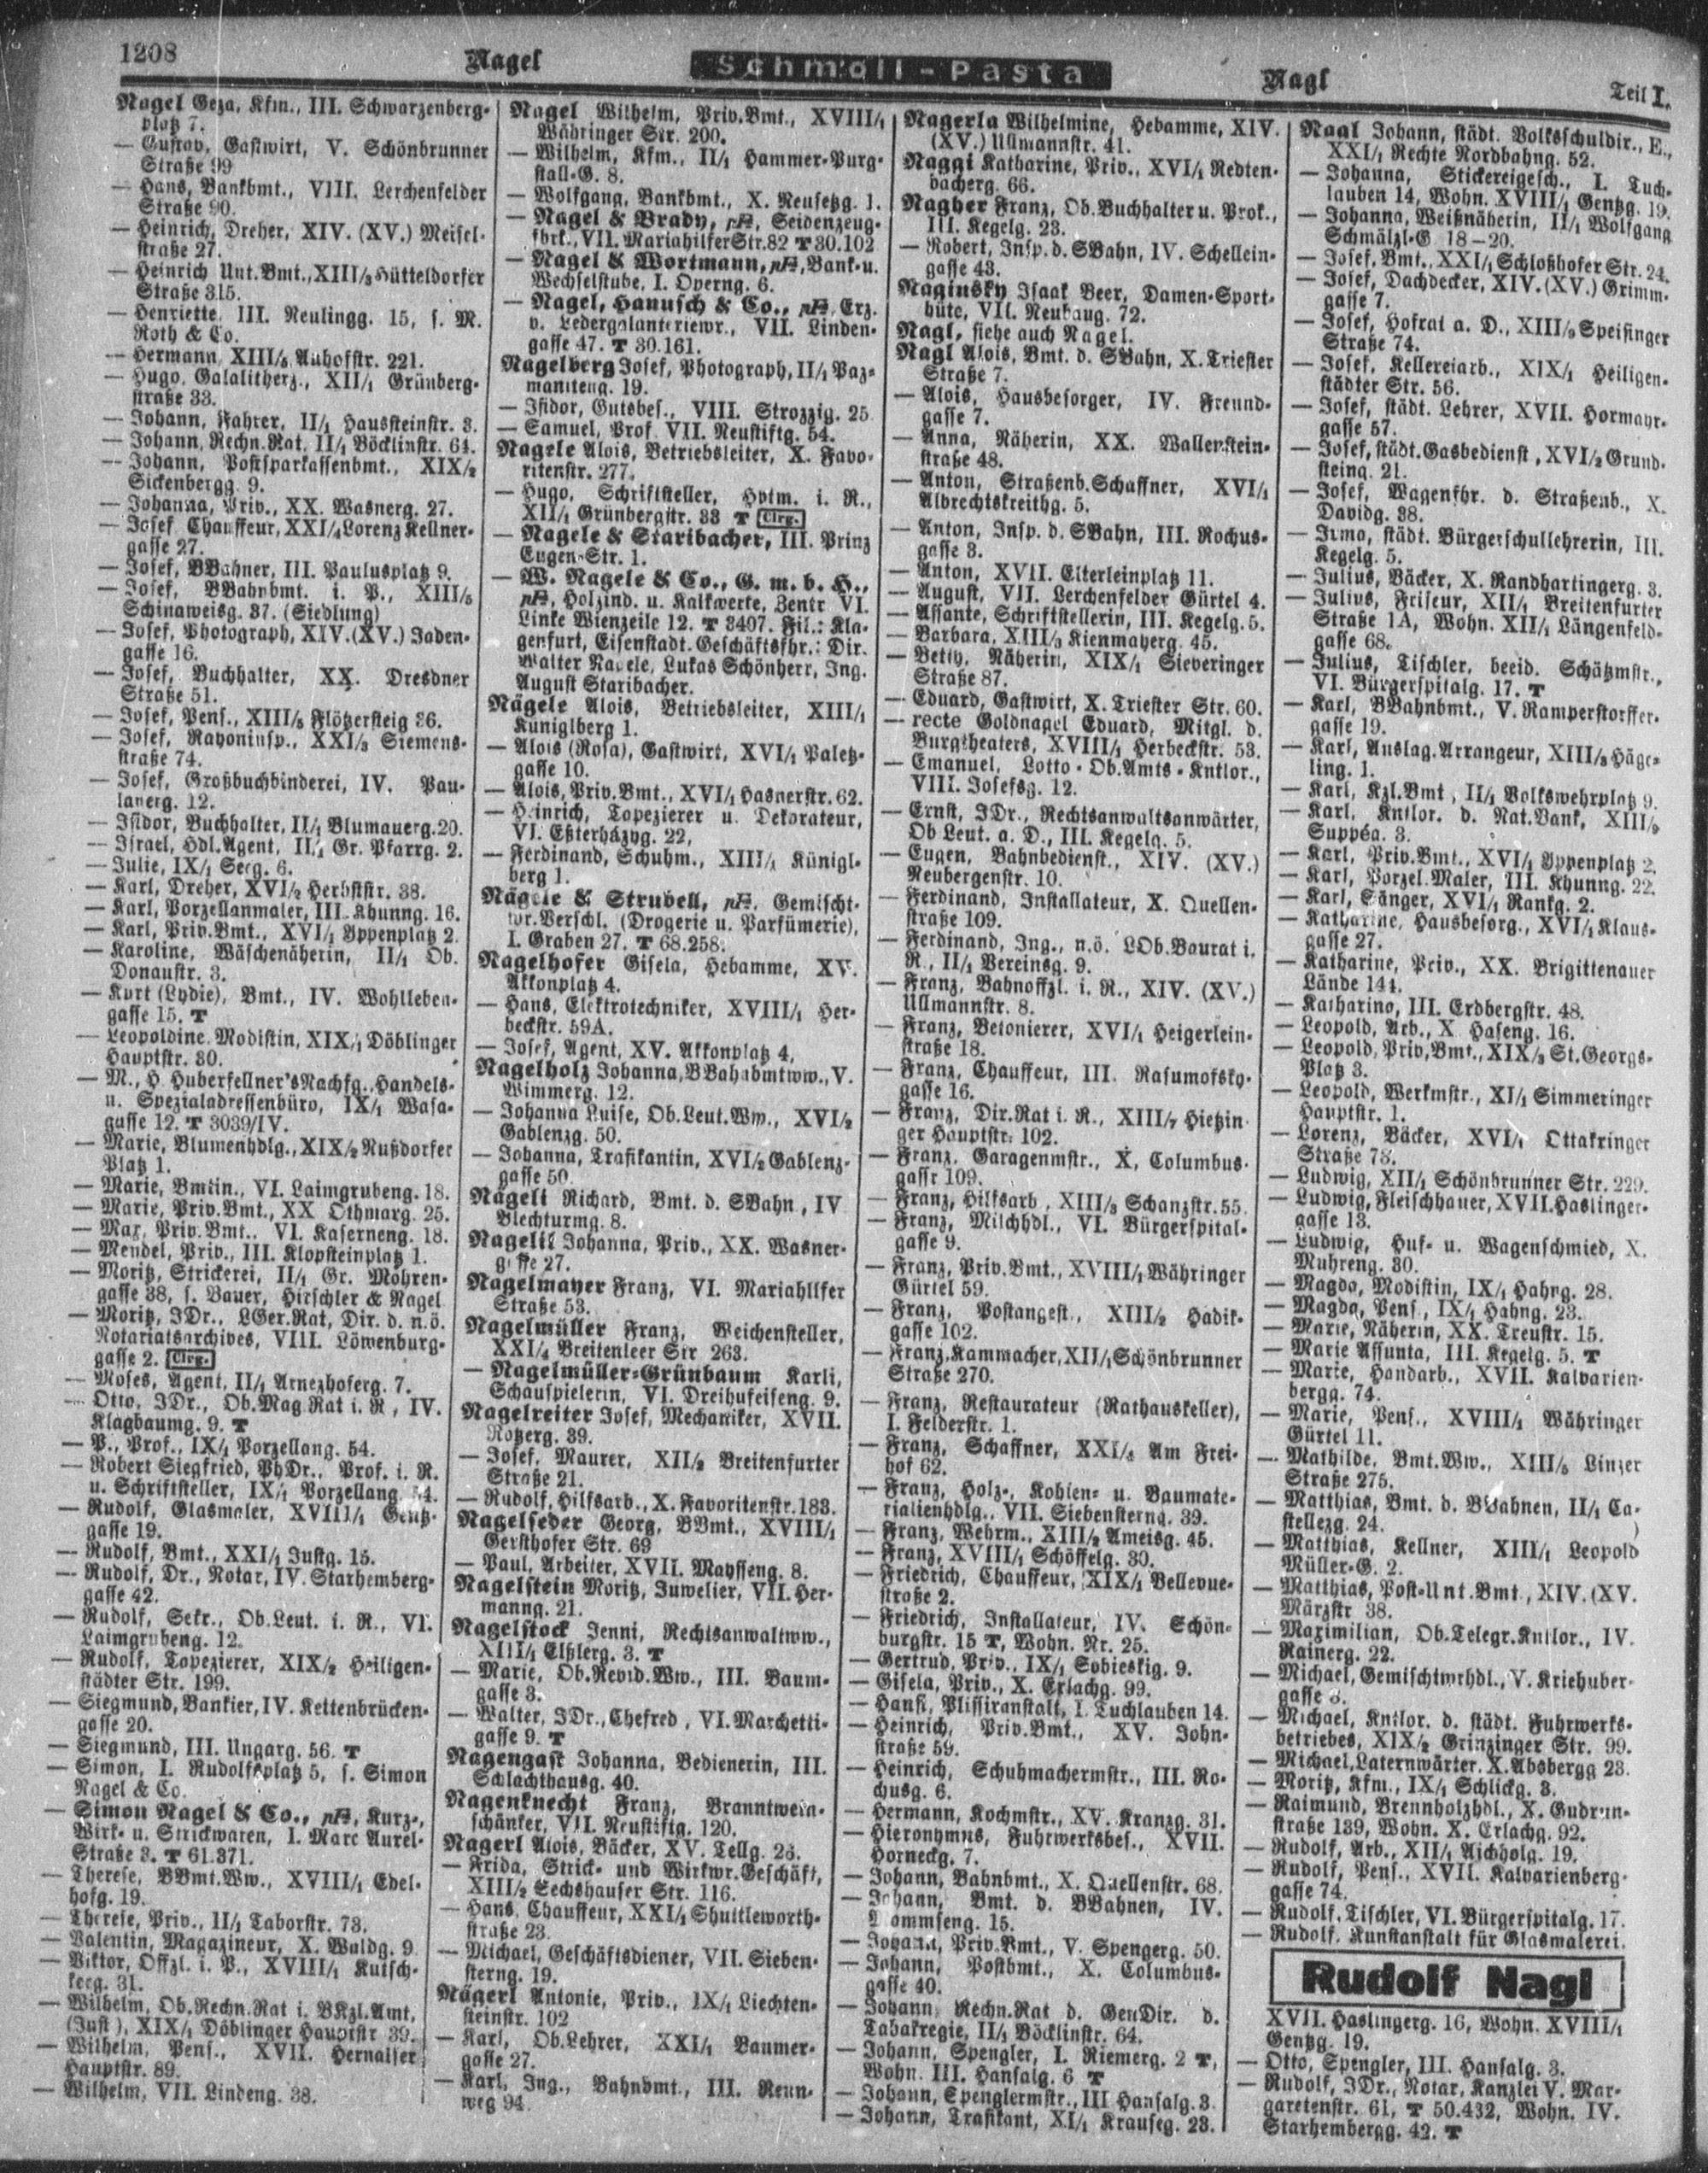 1208
Nagel
Schmoll-Pasta
Nagl
Teil I.
Nagel Geza, Kfm., III. Schwarzenberg-
platz 7.
— Gustav, Gastwirt, V. Schönbrunner
Straße 99
— Hans, Bankbmt., VIII. Lerchenfelder
Straße 90.
— Heinrich, Dreher, XIV. (XV.) Meisel-
straße 27.
— Heinrich Unt.Bmt., XIII/3 Hütteldorfer
Straße 315.
— Henriette, III. Neulingg. 15, s. M.
Roth & Co.
— Hermann, XIII/5 Auhofstr. 221.
— Hugo, Galalitherz., XII/1 Grünberg-
straße 33.
— Johann, Fahrer, II/1 Haussteinstr. 3.
— Johann, Rechn.Rat, II/1 Böcklinstr. 64.
— Johann, Postsparkassenbmt., XIX/2
Sickenbergg. 9.
— Johanna, Priv., XX. Wasnerg. 27.
— Josef Chauffeur, XXI/4 Lorenz Kellner-
gasse 27.
— Josef, BBahner, III. Paulusplatz 9.
— Josef, BBahnbmt. i. P., XIII/5
Schinaweisg. 37. (Siedlung)
— Josef, Photograph, XIV.(XV.) Jaden-
gasse 16.
— Josef, Buchhalter, XX. Dresdner
Straße 51.
— Josef, Pens., XIII/5 Flötzersteig 36.
— Josef, Rayoninsp., XXI/3 Siemens-
straße 74.
— Josef, Großbuchbinderei, IV. Pau-
lanerg. 12.
— Isidor, Buchhalter, II/1 Blumauerg. 20.
— Israel, Hdl.Agent, II/1 Gr. Pfarrg. 2.
— Julie, IX/1 Serg. 6.
— Karl, Dreher, XVI/2 Herbststr. 38.
— Karl, Porzellanmaler, III. Khunng. 16.
— Karl, Priv.Bmt., XVI/1 Yppenplatz 2.
— Karoline, Wäschenäherin, II/1 Ob.
Donaustr. 3.
— Kurt (Lydie), Bmt., IV. Wohlleben-
gasse 15. T
— Leopoldine Modistin, XIX/1 Döblinger
Hauptstr. 30.
— M., H. Huberfellner's Nachfg., Handels-
u. Spezialadressenbüro, IX/1 Wasa-
gasse 12. T 3039/IV.
— Marie, Blumenhdlg., XIX/2 Nußdorfer
Platz 1.
— Marie, Bmtin., VI. Laimgrubeng. 18.
— Marie, Priv.Bmt., XX Othmarg. 25.
— Max, Priv.Bmt., VI. Kaserneng. 18.
— Mendel, Priv., III. Klopsteinplatz 1.
— Moritz, Strickerei, II/1 Gr. Mohren-
gasse 38, s. Bauer, Hirschler & Nagel
— Moritz, JDr., LGer.Rat, Dir. d. n.ö.
Notariatsarchives, VIII. Löwenburg-
gasse 2. Clrg.
— Moses, Agent, II/1 Arnezhoferg. 7.
— Otto, JDr., Ob.Mag.Rat i. R., IV.
Klagbaumg. 9. T
— P., Prof., IX/1 Porzellang. 54.
— Robert Siegfried, PhDr., Prof. i. R.
u. Schriftsteller, IX/1 Porzellang. 54.
— Rudolf, Glasmaler, XVIII/1 Gentz-
gasse 19.
— Rudolf, Bmt., XXI/1 Justg. 15.
— Rudolf, Dr., Notar, IV. Starhemberg-
gasse 42.
— Rudolf, Sekr., Ob.Leut. i. R., VI.
Laimgrubeng. 12.
— Rudolf, Tapezierer, XIX/2 Heiligen-
städter Str. 199.
— Siegmund, Bankier, IV. Kettenbrücken-
gasse 20.
— Siegmund, III. Ungarg. 56. T
— Simon, I. Rudolfsplatz 5, s. Simon
Nagel & Co.
— Simon Nagel & Co., Kurz-,
Wirk- u. Strickwaren, I. Marc Aurel-
Straße 3. T 61.371.
— Therese, BBmt.Ww., XVIII/1 Edel-
hofg. 19.
— Therese, Priv., II/1 Taborstr. 73.
— Valentin, Magazineur, X. Waldg. 9
— Viktor, Offzl. i. P., XVIII/1 Kutsch-
kerg. 31.
— Wilhelm, Ob.Rechn.Rat i. BKzl.Amt,
(Just), XIX/1 Döblinger Hauptstr 39.
— Wilhelm, Pens., XVII. Hernalser
Hauptstr. 89.
— Wilhelm, VII. Lindeng. 38.
Nagel Wilhelm, Priv.Bmt., XVIII/1
Währinger Str. 200.
— Wilhelm, Kfm., II/1 Hammer-Purg-
stall-G. 8.
— Wolfgang, Bankbmt., X. Neusetzg. 1.
— Nagel & Brady, Seidenzeug-
fbrk., VII. Mariahilfer Str. 82 T 30.102
— Nagel & Wortmann, Bank- u.
Wechselstube, I. Operng. 6.
— Nagel, Hanusch & Co., Erz.
v. Ledergalanteriewr., VII. Linden-
gasse 47. T 30.161.
Nagelberg Josef, Photograph, II/1 Paz-
maniteng. 19.
— Isidor, Gutsbes., VIII. Strozzig. 25
— Samuel, Prof. VII. Neustiftg. 54.
Nagele Alois, Betriebsleiter, X. Favo-
ritenstr. 277.
— Hugo, Schriftsteller, Hptm. i. R.,
XII/1 Grünbergstr. 33 T Clrg.
— Nagele & Staribacher, III. Prinz
Eugen-Str. 1.
— W. Nagele & Co., G. m. b. H.,
Holzind. u. Kalkwerke, Zentr VI.
Linke Wienzeile 12. T 3407. Fil.: Kla-
genfurt, Eisenstadt. Geschäftsfhr.: Dir.
Walter Nagele, Lukas Schönherr, Ing.
August Staribacher.
Nägele Alois, Betriebsleiter, XIII/1
Küniglberg 1.
— Alois (Rosa), Gastwirt, XVI/1 Paletz-
gasse 10.
— Alois, Priv.Bmt., XVI/1 Hasnerstr. 62.
— Heinrich, Tapezierer u. Dekorateur,
VI. Eßterházyg. 22,
— Ferdinand, Schuhm., XIII/1 Künigl-
berg 1.
Nägele & Strubell, Gemischt-
wr.Verschl. (Drogerie u. Parfümerie),
I. Graben 27. T 68.258.
Nagelhofer Gisela, Hebamme, XV.
Akkonplatz 4.
— Hans, Elektrotechniker, XVIII/1 Her-
beckstr. 59A.
— Josef, Agent, XV. Akkonplatz 4,
Nagelholz Johanna, BBahnbmtww., V.
Wimmerg. 12.
— Johanna Luise, Ob.Leut.Ww., XVI/2
Gablenzg. 50.
— Johanna, Trafikantin, XVI/2 Gablenz-
gasse 50
Nägeli Richard, Bmt. d. SBahn, IV
Blechturmg. 8.
Nagelil Johanna, Priv., XX. Wasner-
gasse 27.
Nagelmayer Franz, VI. Mariahilfer
Straße 53.
Nagelmüller Franz, Weichensteller,
XXI/4 Breitenleer Str 263.
— Nagelmüller-Grünbaum Karli,
Schauspielerin, VI. Dreihufeiseng. 9.
Nagelreiter Josef, Mechaniker, XVII.
Rötzerg. 39.
— Josef, Maurer, XII/2 Breitenfurter
Straße 21.
— Rudolf, Hilfsarb., X. Favoritenstr. 183.
Nagelseder Georg, BBmt., XVIII/1
Gersthofer Str. 69
— Paul, Arbeiter, XVII. Maysseng. 8.
Nagelstein Moritz, Juwelier, VII. Her-
manng. 21.
Nagelstock Jenni, Rechtsanwaltww.,
XIII/1 Elßlerg. 3. T
— Marie, Ob.Revid.Ww., III. Baum-
gasse 3.
— Walter, JDr., Chefred, VI. Marchetti-
gasse 9. T
Nagengast Johanna, Bedienerin, III.
Schlachthausg. 40.
Nagenknecht Franz, Branntwein-
schänker, VII. Neustiftg. 120.
Nagerl Alois, Bäcker, XV. Tellg. 23.
— Frida, Strick- und Wirkwr.Geschäft,
XIII/2 Sechshauser Str. 116.
— Hans, Chauffeur, XXI/4 Shuttleworth-
straße 23.
— Michael, Geschäftsdiener, VII. Sieben-
sterng. 19.
Nägerl Antonie, Priv., IX/1 Liechten-
steinstr. 102
— Karl, Ob.Lehrer, XXI/1 Baumer-
gasse 27.
— Karl, Ing., Bahnbmt., III. Renn-
weg 94.
Nagerla Wilhelmine, Hebamme, XIV.
(XV.) Ullmannstr. 41.
Naggi Katharine, Priv., XVI/1 Redten-
bacherg. 66.
Nagher Franz, Ob.Buchhalter u. Prok.,
III. Kegelg. 23.
— Robert, Insp. d. SBahn, IV. Schellein-
gasse 43.
Naginsky Isaak Beer, Damen-Sport-
hüte, VII. Neubaug. 72.
Nagl, siehe auch Nagel.
Nagl Alois, Bmt. d. SBahn, X. Triester
Straße 7.
— Alois, Hausbesorger, IV. Freund-
gasse 7.
— Anna, Näherin, XX. Wallenstein-
straße 48.
— Anton, Straßenb.Schaffner, XVI/1
Albrechtskreithg. 5.
— Anton, Insp. d. SBahn, III. Rochus-
gasse 3.
— Anton, XVII. Elterleinplatz 11.
— August, VII. Lerchenfelder Gürtel 4.
— Assante, Schriftstellerin, III. Kegelg. 5.
— Barbara, XIII/3 Kienmayerg. 45.
— Betty, Näherin, XIX/1 Sieveringer
Straße 87.
— Eduard, Gastwirt, X. Triester Str. 60.
— recte Goldnagel Eduard, Mitgl. d.
Burgtheaters, XVIII/1 Herbeckstr. 53.
— Emanuel, Lotto-Ob.Amts-Kntlor.,
VIII. Josefsg. 12.
— Ernst, JDr., Rechtsanwaltsanwärter,
Ob Leut. a. D., III. Kegelg. 5.
— Eugen, Bahnbedienst., XIV. (XV.)
Neubergenstr. 10.
— Ferdinand, Installateur, X. Quellen-
straße 109.
— Ferdinand, Ing., n.ö. LOb.Baurat i.
R., II/1 Vereinsg. 9.
— Franz, Bahnoffzl. i. R., XIV. (XV.)
Ullmannstr. 8.
— Franz, Betonierer, XVI/1 Heigerlein-
straße 18.
— Franz, Chauffeur, III. Rasumofsky-
gasse 16.
— Franz, Dir.Rat i. R., XIII/7 Hietzin
ger Hauptstr. 102.
— Franz, Garagenmstr., X, Columbus-
gasse 109.
— Franz, Hilfsarb, XIII/3 Schanzstr. 55
— Franz, Milchhdl., VI. Bürgerspital-
gasse 9.
— Franz, Priv.Bmt., XVIII/1 Währinger
Gürtel 59.
— Franz, Postangest., XIII/2 Hadik-
gasse 102.
— Franz, Kammacher, XII/1 Schönbrunner
Straße 270.
— Franz, Restaurateur (Rathauskeller),
I. Felderstr. 1.
— Franz, Schaffner, XXI/5 Am Frei-
hof 62.
— Franz, Holz-, Kohlen- u. Baumate-
rialienhdlg., VII. Siebensterng. 39.
— Franz, Wehrm., XIII/2 Ameisg. 45.
— Franz, XVIII/1 Schöffelg. 30.
— Friedrich, Chauffeur, XIX/1 Bellevue-
straße 2.
— Friedrich, Installateur, IV. Schön-
burgstr. 15 T, Wohn. Nr. 25.
— Gertrud, Priv., IX/1 Sobieskig. 9.
— Gisela, Priv., X. Erlachg. 99.
— Hansi, Plissiranstalt, I. Tuchlauben 14.
— Heinrich, Priv.Bmt., XV. John-
straße 59.
— Heinrich, Schuhmachermstr., III. Ro-
chusg. 6.
— Hermann, Kochmstr., XV. Kranzg. 31.
— Hieronymus, Fuhrwerksbes., XVII.
Horneckg. 7.
— Johann, Bahnbmt., X. Quellenstr. 68.
— Johann, Bmt. d. BBahnen, IV.
Mommseng. 15.
— Johann, Priv.Bmt., V. Spengerg. 50.
— Johann, Postbmt., X. Columbus-
gasse 40.
— Johann, Rechn.Rat d. GenDir. d.
Tabakregie, II/1 Böcklinstr. 64.
— Johann, Spengler, I. Riemerg. 2 T,
Wohn. III. Hansalg. 6 T
— Johann, Spenglermstr., III Hansalg. 3
— Johann, Trafikant, XI/1 Krauseg. 23.
Nagl Johann, städt. Volksschuldir., E.,
XXI/1 Rechte Nordbahng. 52.
— Johanna, Stickereigesch., I. Tuch-
lauben 14, Wohn. XVIII/1 Gentzg. 19.
— Johanna, Weißnäherin, II/1 Wolfgang
Schmälzl-G 18–20.
— Josef, Bmt., XXI/1 Schloßhofer Str. 24.
— Josef, Dachdecker, XIV. (XV.) Grimm-
gasse 7.
— Josef, Hofrat a. D., XIII/9 Speisinger
Straße 74.
— Josef, Kellereiarb., XIX/1 Heiligen-
städter Str. 56.
— Josef, städt. Lehrer, XVII. Hormayr-
gasse 57.
— Josef, städt.Gasbedienst, XVI/2 Grund-
steing. 21.
— Josef, Wagenfhr. d. Straßenb., X.
Davidg. 38.
— Irma, städt. Bürgerschullehrerin, III.
Kegelg. 5.
— Julius, Bäcker, X. Randhartingerg. 3.
— Julius, Friseur, XII/1 Breitenfurter
Straße 1A, Wohn. XII/1 Längenfeld-
gasse 68.
— Julius, Tischler, beeid. Schätzmstr.,
VI. Bürgerspitalg. 17. T
— Karl, BBahnbmt., V. Ramperstorffer-
gasse 19.
— Karl, Auslag.Arrangeur, XIII/3 Häge-
ling. 1.
— Karl, Kzl.Bmt, II/1 Volkswehrplatz 9.
— Karl, Kntlor. d. Nat.Bank, XIII/9
Suppég. 3.
— Karl, Priv.Bmt., XVI/1 Yppenplatz 2.
— Karl, Porzel.Maler, III. Khunng. 22.
— Karl, Sänger, XVI/1 Rankg. 2.
— Katharine, Hausbesorg., XVI/1 Klaus-
gasse 27.
— Katharine, Priv., XX. Brigittenauer
Lände 144.
— Katharina, III. Erdbergstr. 48.
— Leopold, Arb., X. Haseng. 16.
— Leopold, Priv.Bmt., XIX/3 St. Georgs-
Platz 3.
— Leopold, Werkmstr., XI/1 Simmeringer
Hauptstr. 1.
— Lorenz, Bäcker, XVI/1 Ottakringer
Straße 73.
— Ludwig, XII/1 Schönbrunner Str. 229.
— Ludwig, Fleischhauer, XVII. Haslinger-
gasse 13.
— Ludwig, Huf- u. Wagenschmied, X.
Muhreng. 30.
— Magda, Modistin, IX/1 Hahng. 28.
— Magda, Pens, IX/1 Hahng. 23.
— Marie, Näherin, XX. Treustr. 15.
— Marie Assunta, III. Kegelg. 5. T
— Marie, Handarb., XVII. Kalvarien-
bergg. 74.
— Marie, Pens., XVIII/1 Währinger
Gürtel 11.
— Mathilde, Bmt.Ww., XIII/5 Linzer
Straße 275.
— Matthias, Bmt. d. BBahnen, II/1 Ca-
stellezg. 24.
— Matthias, Kellner, XIII/1 Leopold
Müller-G. 2.
— Matthias, Post-Unt.Bmt, XIV. (XV.
Märzstr 38.
— Maximilian, Ob.Telegr.Kntlor., IV.
Rainerg. 22.
— Michael, Gemischtwrhdl., V. Kriehuber-
gasse 3.
— Michael, Kntlor. d. städt. Fuhrwerks-
betriebes, XIX/2 Grinzinger Str. 99.
— Michael, Laternwärter, X. Absbergg 23.
— Moritz, Kfm., IX/1 Schlickg. 3.
— Raimund, Brennholzhdl., X. Gudrun-
straße 139, Wohn. X. Erlachg. 92.
— Rudolf, Arb., XII/1 Aichholzg. 19.
— Rudolf, Pens., XVII. Kalvarienberg-
gasse 74.
— Rudolf, Tischler, VI. Bürgerspitalg. 17.
— Rudolf, Kunstanstalt für Glasmalerei.
Rudolf Nagl
XVII. Haslingerg. 16, Wohn. XVIII/1
Gentzg. 19.
— Otto, Spengler, III. Hansalg. 3.
— Rudolf, JDr., Notar, Kanzlei V. Mar-
garetenstr. 61, T 50.432, Wohn. IV.
Starhembergg. 42. T